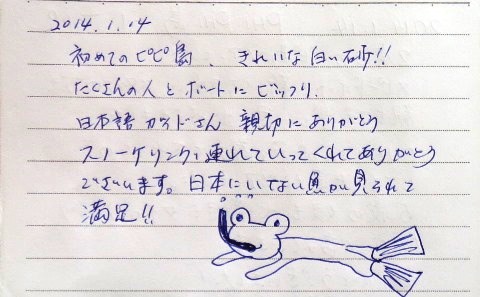 2014.1.14
初めてのピピ島、きれいな白い砂!!
たくさんの人とボートにビックリ.
日本語ガイドさん 親切にありがとう
スノーケリングに連れていってくれてありがとう
ございます。日本にいてない魚が見られて
満足!!